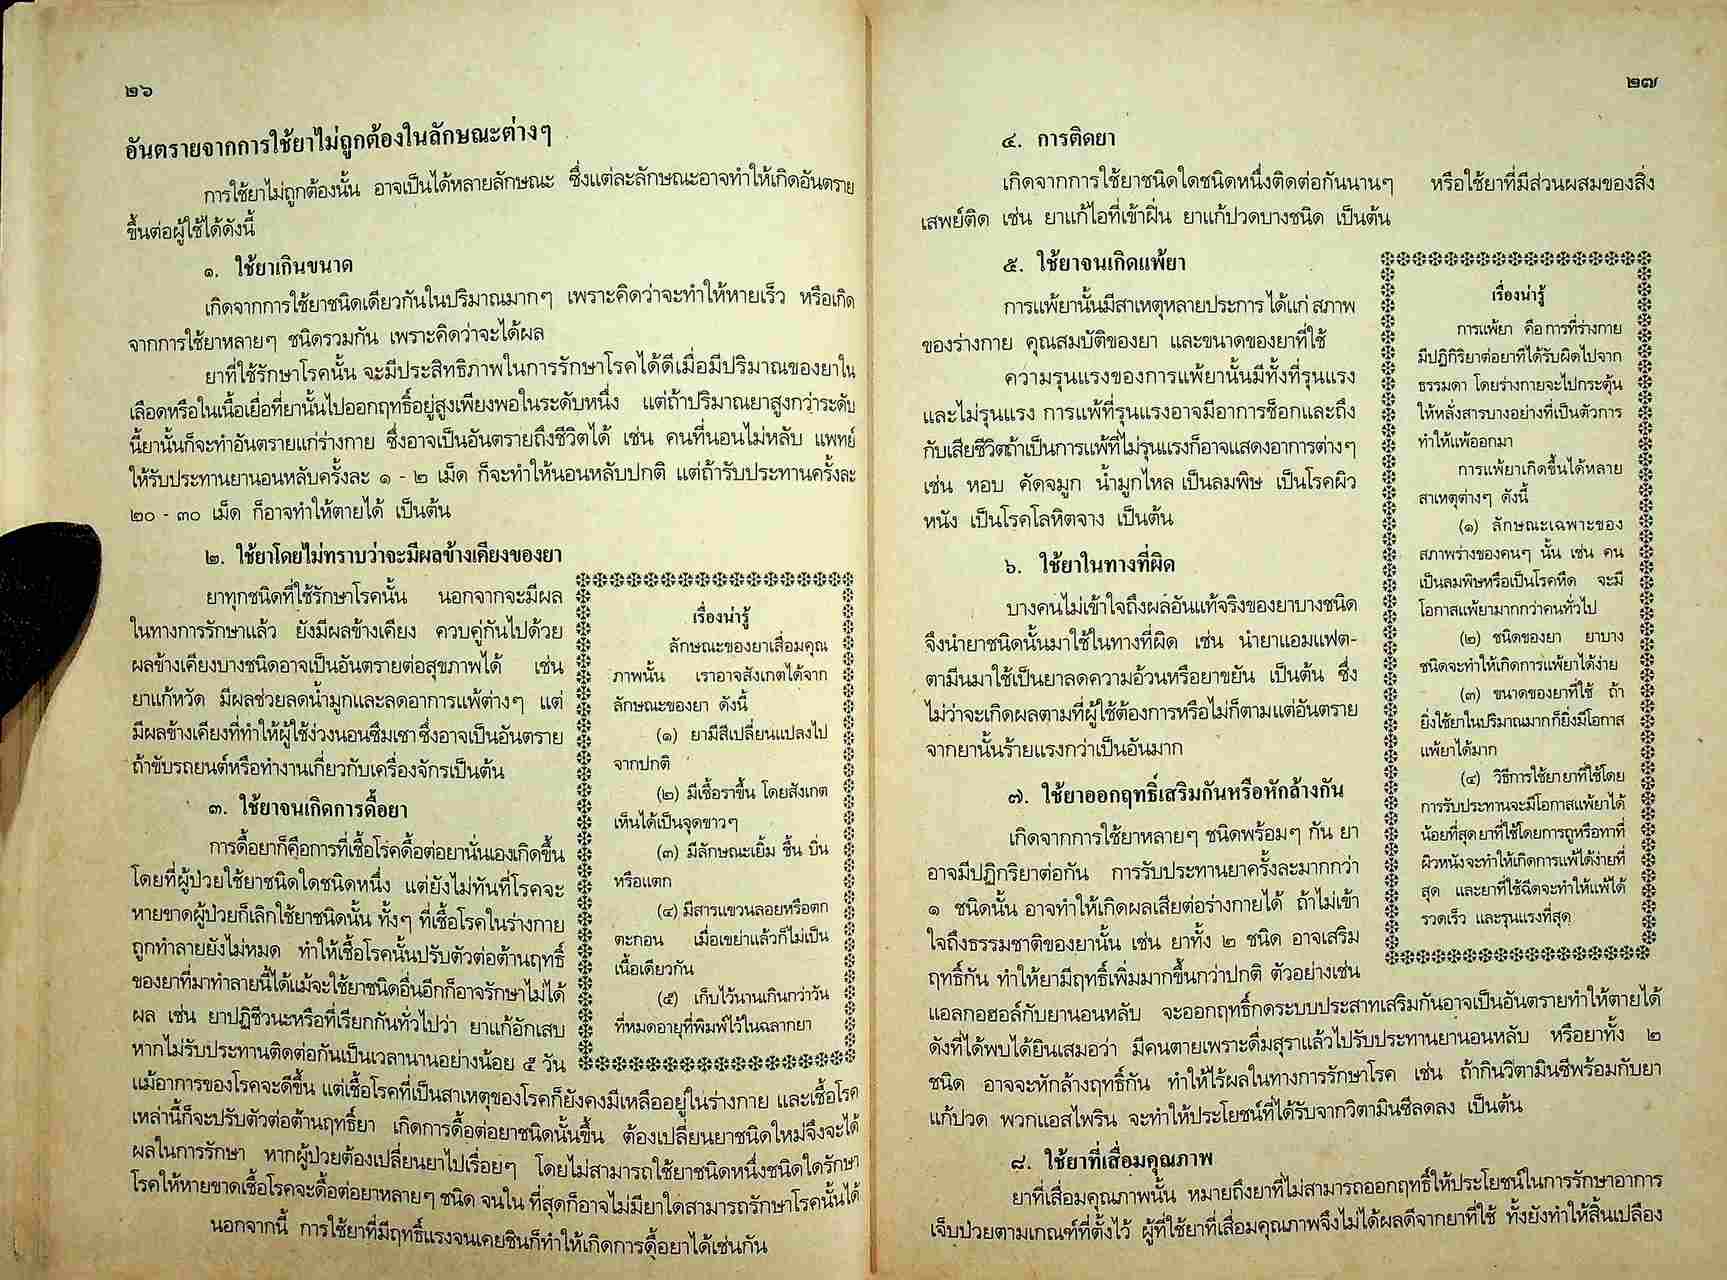 ๒๖
อันตรายจากการใช้ยาไม่ถูกต้องในลักษณะต่างๆ
การใช้ยาไม่ถูกต้องนั้น อาจเป็นได้หลายลักษณะ ซึ่งแต่ละลักษณะอาจทำให้เกิดอันตราย
ขึ้นต่อผู้ใช้ได้ดังนี้
๑. ใช้ยาเกินขนาด
เกิดจากการใช้ยาชนิดเดียวกันในปริมาณมากๆ เพราะคิดว่าจะทำให้หายเร็ว หรือเกิด
จากการใช้ยาหลายๆ ชนิดรวมกัน เพราะคิดว่าจะได้ผล
ยาที่ใช้รักษาโรคนั้น จะมีประสิทธิภาพในการรักษาโรคได้ดีเมื่อมีปริมาณของยาใน
เลือดหรือในเนื้อเยื่อที่ยานั้นไปออกฤทธิ์อยู่สูงเพียงพอในระดับหนึ่ง แต่ถ้าปริมาณยาสูงกว่าระดับ
นี้ยานั้นก็จะทำอันตรายแก่ร่างกาย ซึ่งอาจเป็นอันตรายถึงชีวิตได้ เช่น คนที่นอนไม่หลับ แพทย์
ให้รับประทานยานอนหลับครั้งละ ๑ - ๒ เม็ด ก็จะทำให้นอนหลับปกติ แต่ถ้ารับประทานครั้งละ
๒๐ - ๓๐ เม็ด ก็อาจทำให้ตายได้ เป็นต้น
๒. ใช้ยาโดยไม่ทราบว่าจะมีผลข้างเคียงของยา
ยาทุกชนิดที่ใช้รักษาโรคนั้น นอกจากจะมีผล
ในทางการรักษาแล้ว ยังมีผลข้างเคียง ควบคู่กันไปด้วย
ผลข้างเคียงบางชนิดอาจเป็นอันตรายต่อสุขภาพได้ เช่น
ยาแก้หวัด มีผลช่วยลดน้ำมูกและลดอาการแพ้ต่างๆ แต่
มีผลข้างเคียงที่ทำให้ผู้ใช้ง่วงนอนซึมเซา ซึ่งอาจเป็นอันตราย
ถ้าขับรถยนต์หรือทำงานเกี่ยวกับเครื่องจักรเป็นต้น
๓. ใช้ยาจนเกิดการดื้อยา
การดื้อยาก็คือการที่เชื้อโรคดื้อต่อยานั่นเองเกิดขึ้น
โดยที่ผู้ป่วยใช้ยาชนิดใดชนิดหนึ่ง แต่ยังไม่ทันที่โรคจะ
หายขาดผู้ป่วยก็เลิกใช้ยาชนิดนั้น ทั้งๆ ที่เชื้อโรคในร่างกาย
ถูกทำลายยังไม่หมด ทำให้เชื้อโรคนั้นปรับตัวต่อต้านฤทธิ์
ของยาที่มาทำลายนี้ได้แม้จะใช้ยาชนิดอื่นอีกก็อาจรักษาไม่ได้
ผล เช่น ยาปฏิชีวนะหรือที่เรียกกันทั่วไปว่า ยาแก้อักเสบ
หากไม่รับประทานติดต่อกันเป็นเวลานานอย่างน้อย ๕ วัน
แม้อาการของโรคจะดีขึ้น แต่เชื้อโรคที่เป็นสาเหตุของโรคก็ยังคงมีเหลืออยู่ในร่างกาย และเชื้อโรค
เหล่านี้ก็จะปรับตัวต่อต้านฤทธิ์ยา เกิดการดื้อต่อยาชนิดนั้นขึ้น ต้องเปลี่ยนยาชนิดใหม่จึงจะได้
ผลในการรักษา หากผู้ป่วยต้องเปลี่ยนยาไปเรื่อยๆ โดยไม่สามารถใช้ยาชนิดหนึ่งชนิดใดรักษา
โรคให้หายขาดเชื้อโรคจะดื้อต่อยาหลายๆ ชนิด จนใน ที่สุดก็อาจไม่มียาใดสามารถรักษาโรคนั้นได้
นอกจากนี้ การใช้ยาที่มีฤทธิ์แรงจนเคยชินก็ทำให้เกิดการดื้อยาได้เช่นกัน
เรื่องน่ารู้
ลักษณะของยาเสื่อมคุณ
ภาพนั้น เราอาจสังเกตได้จาก
ลักษณะของยา ดังนี้
(๑) ยามีสีเปลี่ยนแปลงไป
จากปกติ
(๒) มีเชื้อราขึ้น โดยสังเกต
เห็นได้เป็นจุดขาวๆ
(๓) มีลักษณะเยิ้ม ชื้น บิ่น
หรือแตก
(๔) มีสารแขวนลอยหรือตก
ตะกอน เมื่อเขย่าแล้วก็ไม่เป็น
เนื้อเดียวกัน
(๕) เก็บไว้นานเกินกว่าวัน
ที่หมดอายุที่พิมพ์ไว้ในฉลากยา
๒๗
๔. การติดยา
เกิดจากการใช้ยาชนิดใดชนิดหนึ่งติดต่อกันนานๆ หรือใช้ยาที่มีส่วนผสมของสิ่ง
เสพย์ติด เช่น ยาแก้ไอที่เข้าฝิ่น ยาแก้ปวดบางชนิด เป็นต้น
๕. ใช้ยาจนเกิดแพ้ยา
การแพ้ยานั้นมีสาเหตุหลายประการ ได้แก่ สภาพ
ของร่างกาย คุณสมบัติของยา และขนาดของยาที่ใช้
ความรุนแรงของการแพ้ยานั้นมีทั้งที่รุนแรง
และไม่รุนแรง การแพ้ที่รุนแรงอาจมีอาการช็อกและถึง
กับเสียชีวิตถ้าเป็นการแพ้ที่ไม่รุนแรงก็อาจแสดงอาการต่างๆ
เช่น หอบ คัดจมูก น้ำมูกไหล เป็นลมพิษ เป็นโรคผิว
หนัง เป็นโรคโลหิตจาง เป็นต้น
๖. ใช้ยาในทางที่ผิด
บางคนไม่เข้าใจถึงผลอันแท้จริงของยาบางชนิด
จึงนำยาชนิดนั้นมาใช้ในทางที่ผิด เช่น นำยาแอมแฟต-
ตามีนมาใช้เป็นยาลดความอ้วนหรือยาขยัน เป็นต้น ซึ่ง
ไม่ว่าจะเกิดผลตามที่ผู้ใช้ต้องการหรือไม่ก็ตามแต่อันตราย
จากยานั้นร้ายแรงกว่าเป็นอันมาก
๗. ใช้ยาออกฤทธิ์เสริมกันหรือหักล้างกัน
เกิดจากการใช้ยาหลายๆ ชนิดพร้อมๆ กัน ยา
อาจมีปฏิกริยาต่อกัน การรับประทานยาครั้งละมากกว่า
๑ ชนิดนั้น อาจทำให้เกิดผลเสียต่อร่างกายได้ ถ้าไม่เข้า
ใจถึงธรรมชาติของยานั้น เช่น ยาทั้ง ๒ ชนิด อาจเสริม
ฤทธิ์กัน ทำให้ยามีฤทธิ์เพิ่มมากขึ้นกว่าปกติ ตัวอย่างเช่น
แอลกอฮอล์กับยานอนหลับ จะออกฤทธิ์กดระบบประสาทเสริมกันอาจเป็นอันตรายทำให้ตายได้
ดังที่ได้พบได้ยินเสมอว่า มีคนตายเพราะดื่มสุราแล้วไปรับประทานยานอนหลับ หรือยาทั้ง ๒
ชนิด อาจจะหักล้างฤทธิ์กัน ทำให้ไร้ผลในทางการรักษาโรค เช่น ถ้ากินวิตามินซีพร้อมกับยา
แก้ปวด พวกแอสไพริน จะทำให้ประโยชน์ที่ได้รับจากวิตามินซีลดลง เป็นต้น
๘. ใช้ยาที่เสื่อมคุณภาพ
ยาที่เสื่อมคุณภาพนั้น หมายถึงยาที่ไม่สามารถออกฤทธิ์ให้ประโยชน์ในการรักษาอาการ
เจ็บป่วยตามเกณฑ์ที่ตั้งไว้ ผู้ที่ใช้ยาที่เสื่อมคุณภาพจึงไม่ได้ผลดีจากยาที่ใช้ ทั้งยังทำให้สิ้นเปลือง
เรื่องน่ารู้
การแพ้ยา คือ การที่ร่างกาย
มีปฏิกิริยาต่อยาที่ได้รับผิดไปจาก
ธรรมดา โดยร่างกายจะไปกระตุ้น
ให้หลั่งสารบางอย่างที่เป็นตัวการ
ทำให้แพ้ออกมา
การแพ้ยาเกิดขึ้นได้หลาย
สาเหตุต่างๆ ดังนี้
(๑) ลักษณะเฉพาะของ
สภาพร่างของคนๆ นั้น เช่น คน
เป็นลมพิษหรือเป็นโรคหืด จะมี
โอกาสแพ้ยามากกว่าคนทั่วไป
(๒) ชนิดของยา ยาบาง
ชนิดจะทำให้เกิดการแพ้ยาได้ง่าย
(๓) ขนาดของยาที่ใช้ ถ้า
ยิ่งใช้ยาในปริมาณมากก็ยิ่งมีโอกาส
แพ้ยาได้มาก
(๔) วิธีการใช้ยา ยาที่ใช้โดย
การรับประทานจะมีโอกาสแพ้ยาได้
น้อยที่สุด ยาที่ใช้โดยการถูหรือทาที่
ผิวหนังจะทำให้เกิดการแพ้ได้ง่ายที่
สุด และยาที่ใช้ฉีดจะทำให้แพ้ได้
รวดเร็ว และรุนแรงที่สุด